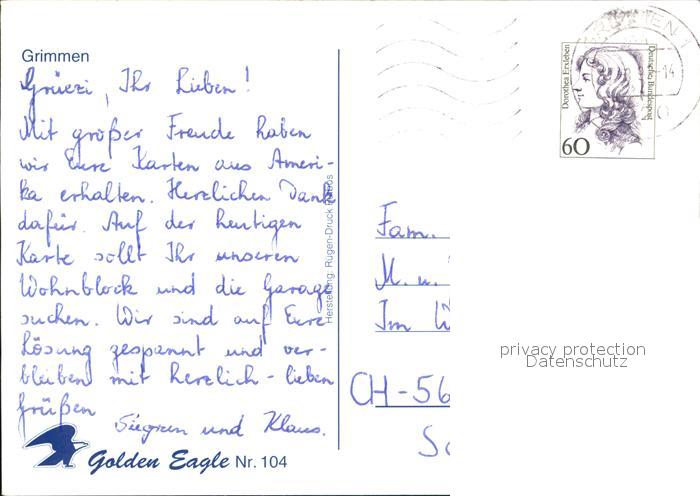 Grimmen
Grüezi, Ihr Lieben!
Mit großer Freude haben
wir Eure Karten aus Ameri-
ka erhalten. Herzlichen Dank
dafür. Auf der heutigen
Karte sollt Ihr unseren
Wohnblock und die Garage
suchen. Wir sind auf Eure
Lösung gespannt und ver-
bleiben mit herzlich-lieben
Grüßen
Siegrun und Klaus.
Golden Eagle Nr. 104
Herstellung: Rügen-Druck
Dorothea Erxleben
Deutsche Bundespost
60
GRIMMEN 1
Fam.
M. u.
Im
CH-56
privacy protection
Datenschutz